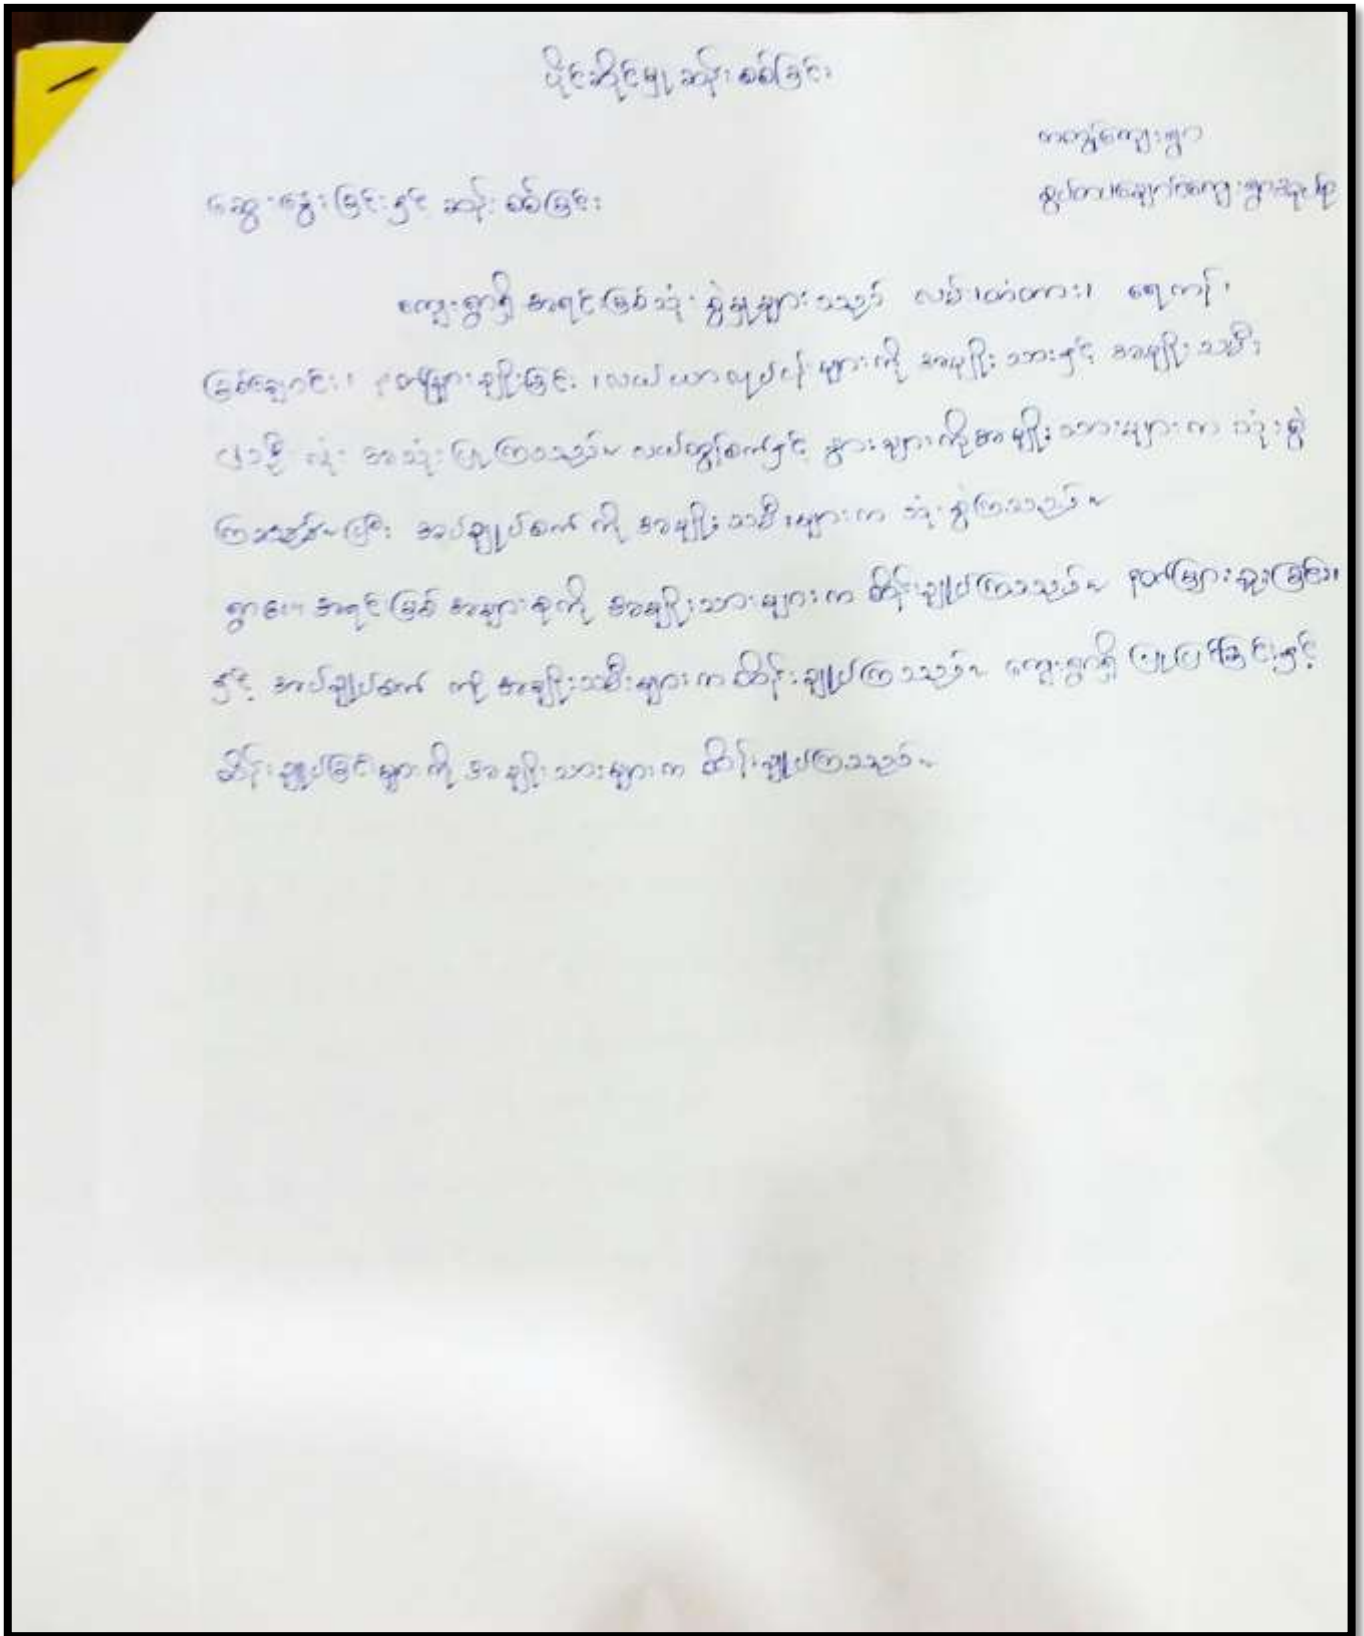 ပိုင်ဆိုင်မှု ဆန်းစစ်ခြင်း
ကျေးရွာ
ဆွေးနွေးခြင်းနှင့် ဆန်းစစ်ခြင်း
ကျေးရွာရှိ အရင်းမြစ်သုံးစွဲမှုများသည် လမ်း၊တံတား၊ ရေကန်၊
မြစ်ချောင်း၊ ငုတ်များချိုးခြင်း၊လယ်ယာလုပ်ငန်းများကို အမျိုးသားနှင့် အမျိုးသမီး
၂ဦးလုံး အသုံးပြုကြသည်။ လယ်ထွန်စက်နှင့် နွားများကိုအမျိုးသားများက သုံးစွဲ
ပြီး အပ်ချုပ်စက်ကို အမျိုးသမီးများက သုံးစွဲကြသည်။
ရွာပေါ် အရင်းမြစ်အများစုကို အမျိုးသားများက ထိန်းချုပ်ကြသည်။
နှင့် အပ်ချုပ်စက် ကို အမျိုးသမီးများက ထိန်းချုပ်ကြသည်။ ကျေးရွာရှိ ပြုပြင်ခြင်းနှင့်
ထိန်းချုပ်ခြင်းများကို အမျိုးသားများက ထိန်းချုပ်ကြသည်။